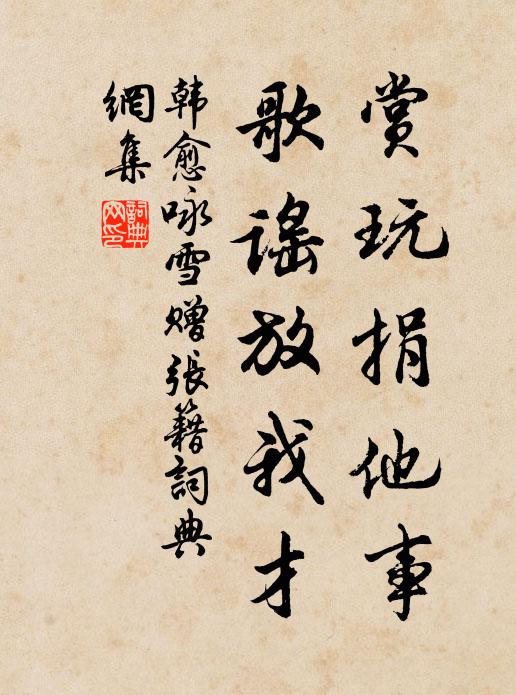 賞玩捐他事
歌謡放我才
韩愈咏雪贈張籍詞典
網集
詞典
网印